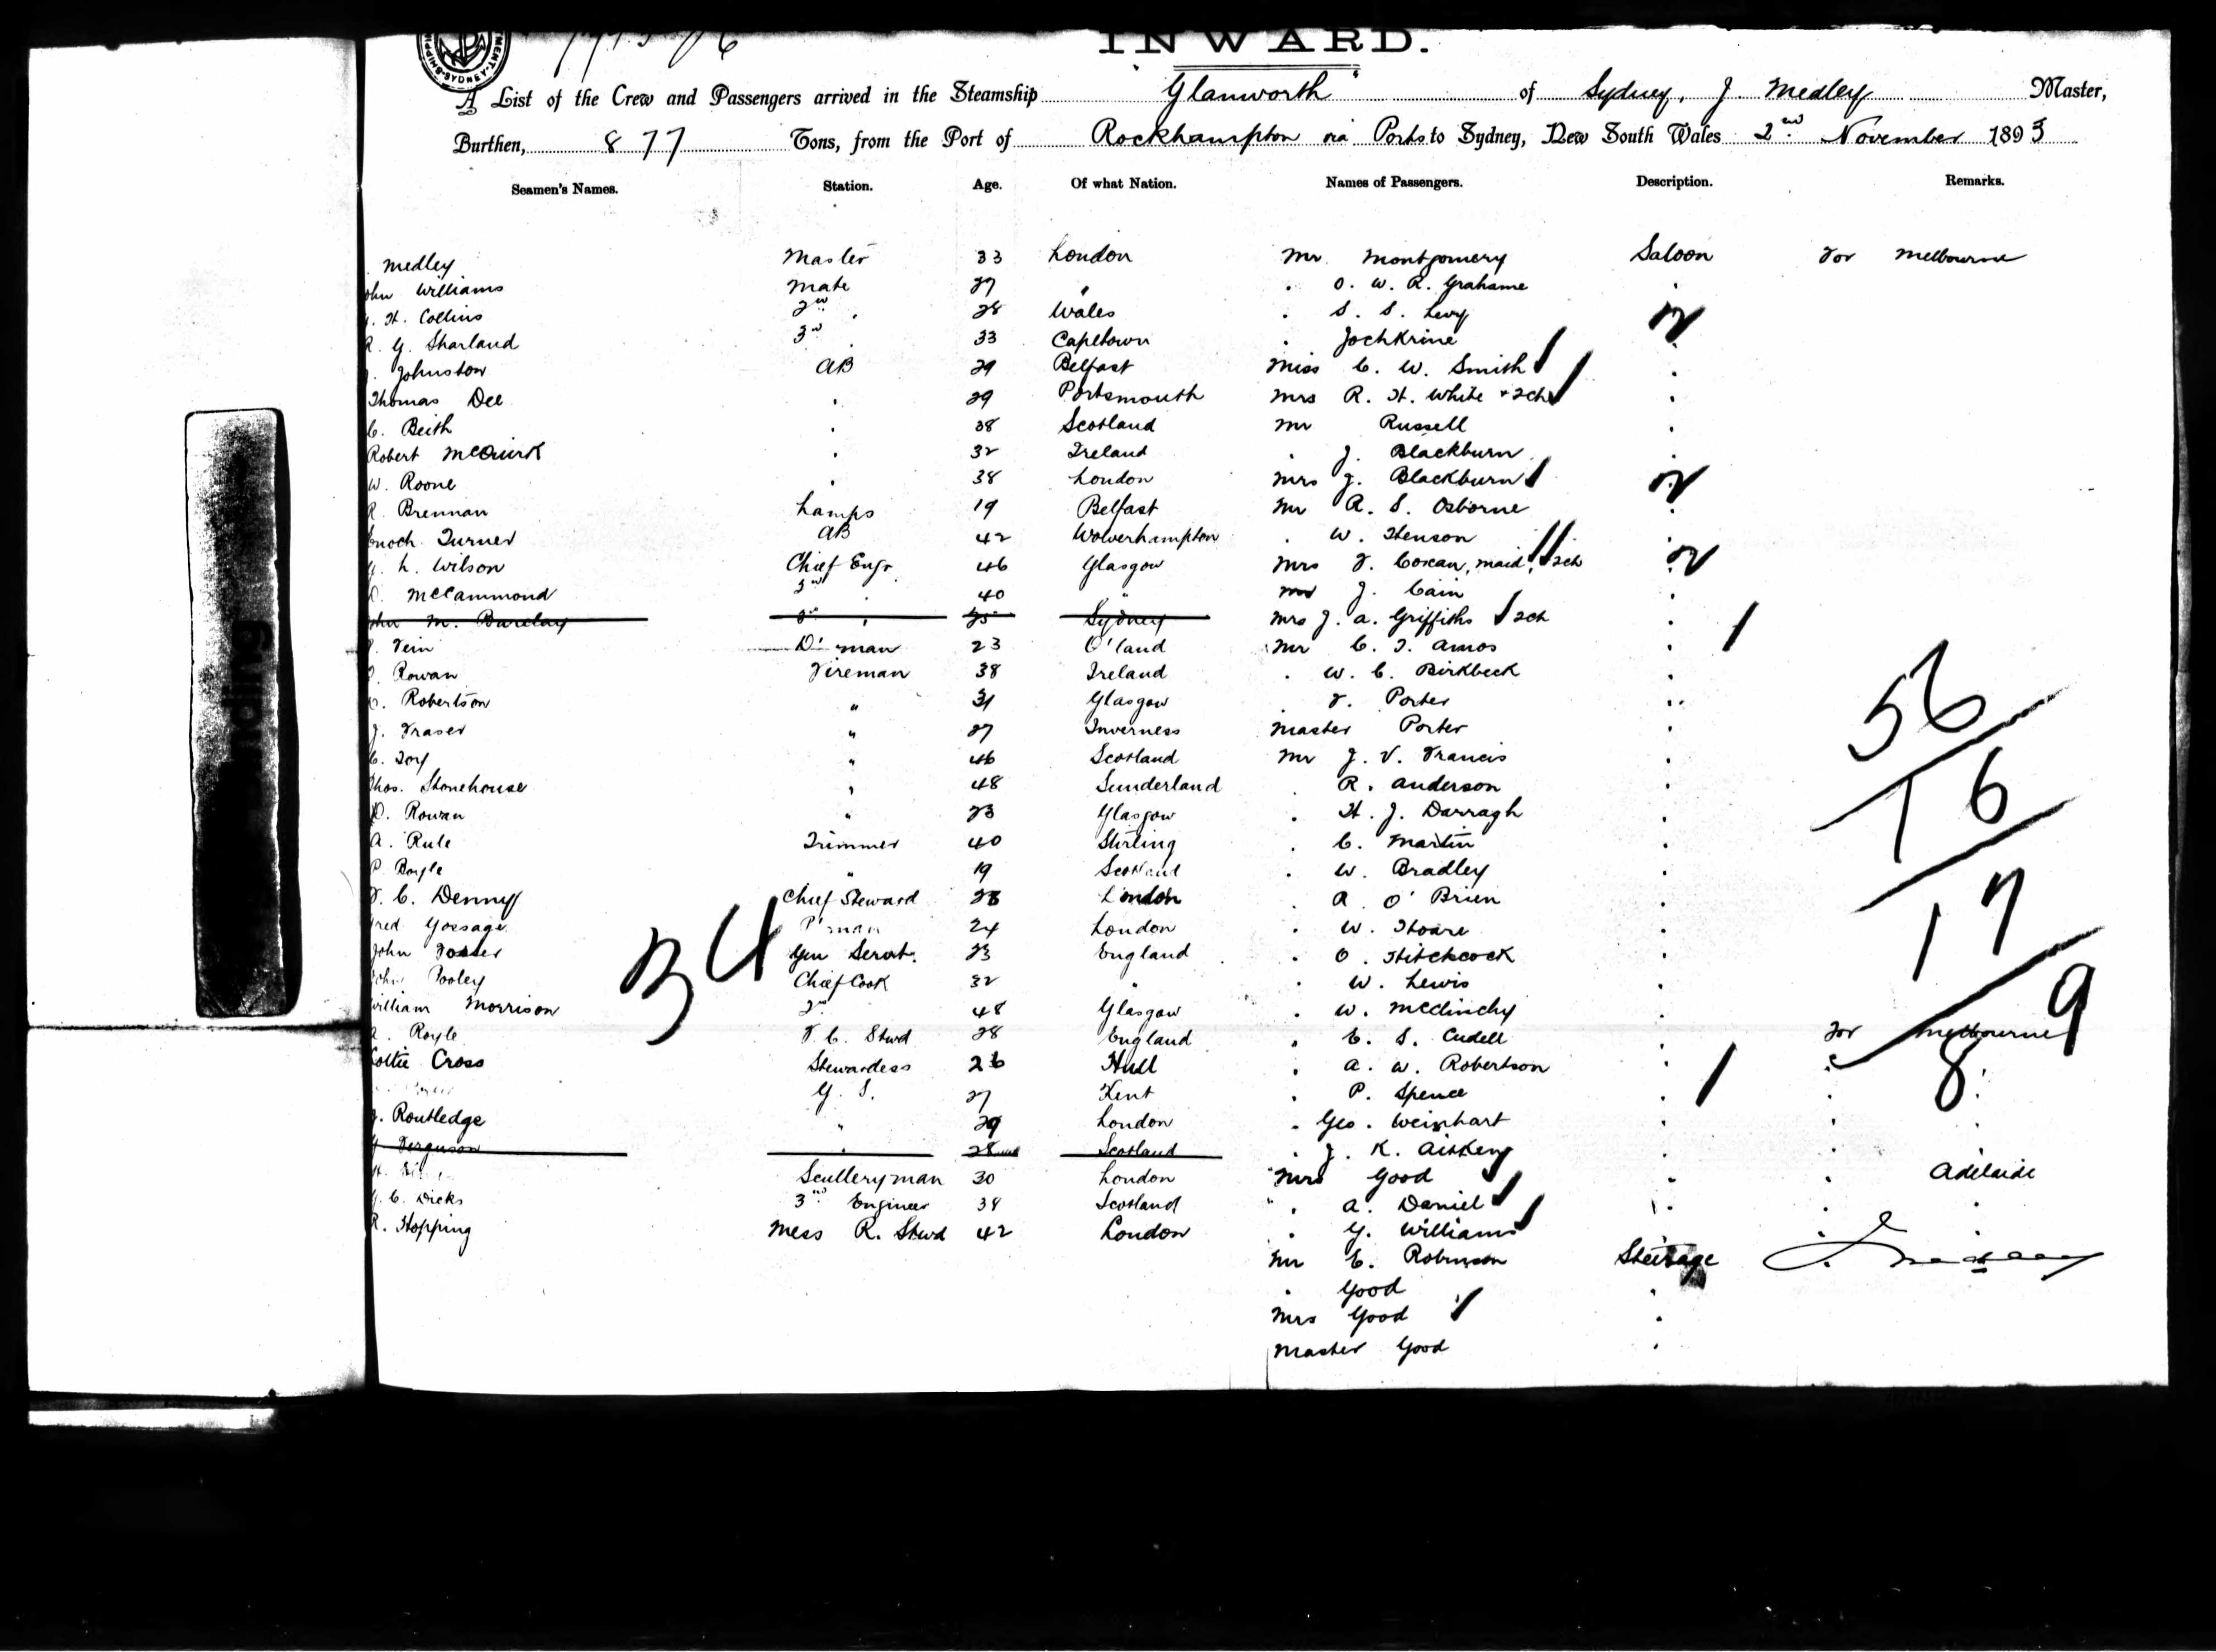 INWARD.
A List of the Crew and Passengers arrived in the Steamship "Glanworth" of Sydney, J. Medley Master,
Burthen, 877 Tons, from the Port of Rockhampton via Ports to Sydney, New South Wales 2nd November 1893
Seamen's Names. Station. Age. Of what Nation. Names of Passengers. Description. Remarks.
Medley Master 33 London Mr Montgomery Saloon For Melbourne
John Williams Mate 27 " . O. W. R. Grahame .
H. Collins 2nd . 28 Wales . S. S. Levy .
R. G. Sharland 3rd 33 Capetown . Jochkrine .
Johnston AB 29 Belfast Miss C. W. Smith .
Thomas Dee . 29 Portsmouth Mrs R. H. White + 2ch .
C. Beith . 38 Scotland Mr Russell .
Robert McQuirk . 32 Ireland . J. Blackburn
W. Roone . 38 London Mrs J. Blackburn .
R. Brennan Lamps 19 Belfast Mr R. S. Osborne .
Enoch Turner AB 42 Wolverhampton . W. Henson .
L. Wilson Chief Engr 46 Glasgow Mrs F. Coxan, maid, 2ch .
McCammond 2nd . 40 " Mr J. Cain .
John M. Barclay 3rd . 25 Sydney Mrs J. A. Griffiths 2ch .
Fein D'man 23 O'land Mr C. T. Amos .
Rowan Fireman 38 Ireland . W. C. Birkbeck .
Robertson " 31 Glasgow . F. Porter .
J. Fraser " 27 Inverness Master Porter .
C. Toy " 46 Scotland Mr J. V. Francis .
Thos. Stonehouse " 48 Sunderland . R. Anderson .
D. Rowan " 23 Glasgow . H. J. Darragh .
A. Rule Trimmer 40 Stirling . C. Martin .
P. Boyle " 19 Scotland . W. Bradley .
F. C. Denny Chief Steward 28 London . A. O'Brien .
Fred Gossage P'man 24 London . W. Hoare .
John Gen Servt. 23 England . O. Hitchcock .
John Pooley Chief Cook 32 " . W. Lewis .
William Morrison 2nd 48 Glasgow . W. McClinchy .
Royle F. C. Stwd 28 England . C. S. Cudell . For Melbourne
Lottie Cross Stewardess 26 Hull . A. W. Robertson .
G. S. 27 Kent . P. Spence .
J. Routledge " 29 London . Geo. Weinhart .
Ferguson . 28 Scotland . J. K. Aitken .
Sculleryman 30 London Mrs Good . . Adelaide
C. Dicks 3rd Engineer 38 Scotland " . A. Daniel .
R. Hopping Mess R. Stwd 42 London . G. Williams .
Mr E. Robinson Steerage
. Good .
Mrs Good .
Master Good .
34
56
16
17
9
8